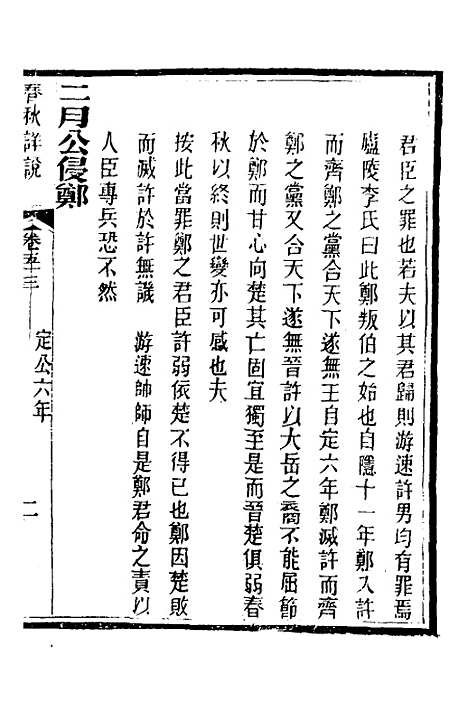 君臣之罪也若夫以其君歸則游速許男均有罪焉
廬陵李氏曰此鄭叛伯之始也自隱十一年鄭入許
而齊鄭之黨合天下遂無王自定六年鄭滅許而齊
鄭之黨又合天下遂無晉許以大岳之裔不能屈節
於鄭而甘心向楚其亡固宜獨至是而晉楚俱弱春
秋以終則世變亦可感也夫
按此當罪鄭之君臣許弱依楚不得已也鄭因楚敗
而滅許於許無譏　游速帥師自是鄭君命之責以
人臣專兵恐不然
二月公侵鄭
春秋詳說
卷五十三
定公六年
二